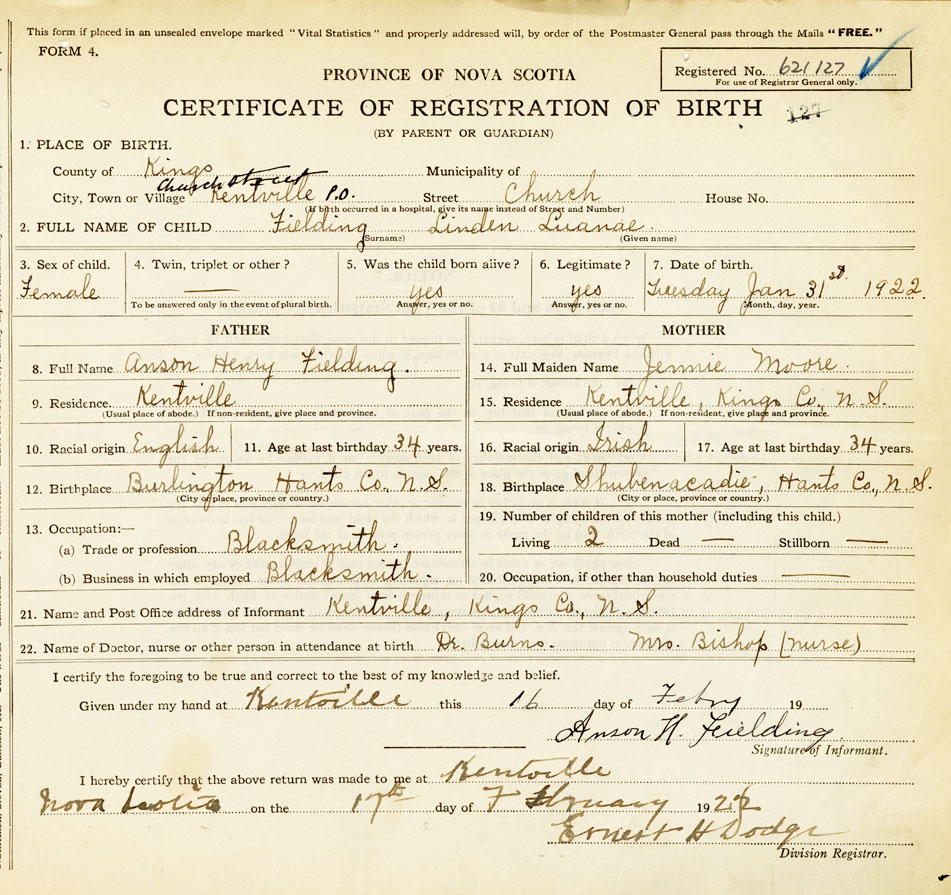 This form if placed in an unsealed envelope marked "Vital Statistics" and properly addressed will, by order of the Postmaster General pass through the Mails "FREE."
FORM 4.
Registered No. 621127
For use of Registrar General only.
PROVINCE OF NOVA SCOTIA
CERTIFICATE OF REGISTRATION OF BIRTH 127
(BY PARENT OR GUARDIAN)
1. PLACE OF BIRTH.
County of Kings Municipality of
Church Street
City, Town or Village Kentville P.O. Street Church House No.
(If birth occurred in a hospital, give its name instead of Street and Number)
2. FULL NAME OF CHILD Fielding Linden Luanae.
(Surname) (Given name)
3. Sex of child. 4. Twin, triplet or other? 5. Was the child born alive? 6. Legitimate? 7. Date of birth.
Female — yes yes Tuesday Jan 31st. 1922.
To be answered only in the event of plural birth. Answer, yes or no. Answer, yes or no. Month, day, year.
FATHER MOTHER
8. Full Name Anson Henry Fielding. 14. Full Maiden Name Jennie Moore.
9. Residence. Kentville 15. Residence Kentville, Kings Co., N.S.
(Usual place of abode.) If non-resident, give place and province. (Usual place of abode.) If non-resident, give place and province.
10. Racial origin English 11. Age at last birthday 34 years. 16. Racial origin Irish 17. Age at last birthday 34 years.
12. Birthplace Burlington Hants Co., N.S. 18. Birthplace Shubenacadie, Hants Co., N.S.
(City or place, province or country.) (City or place, province or country.)
13. Occupation:— 19. Number of children of this mother (including this child.)
(a) Trade or profession Blacksmith. Living 2 Dead — Stillborn —
(b) Business in which employed Blacksmith. 20. Occupation, if other than household duties —
21. Name and Post Office address of Informant Kentville, Kings Co., N.S.
22. Name of Doctor, nurse or other person in attendance at birth Dr. Burns. Mrs. Bishop (Nurse)
I certify the foregoing to be true and correct to the best of my knowledge and belief.
Given under my hand at Kentville this 16 day of Febry 19
Anson H. Fielding.
Signature of Informant.
I hereby certify that the above return was made to me at Kentville
Nova Scotia on the 17th day of February 1922
Ernest H Dodge
Division Registrar.